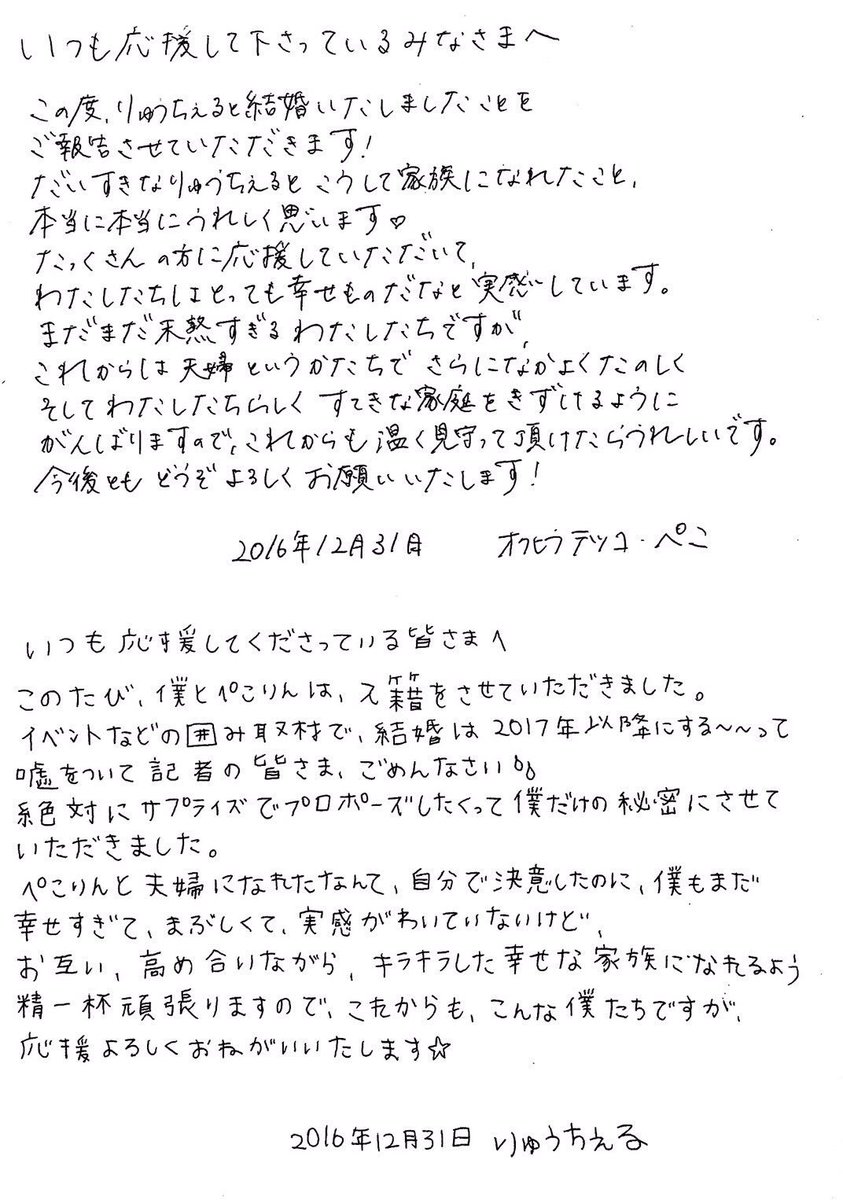 いつも応援して下さっているみなさまへ
この度、りゅうちぇると結婚いたしましたことを
ご報告させていただきます！
だいすきなりゅうちぇると こうして家族になれたこと、
本当に本当にうれしく思います♡
たっくさんの方に応援していただいて、
わたしたちはとっても幸せものだなと実感しています。
まだまだ未熟すぎるわたしたちですが、
これからは夫婦というかたちで さらになかよくたのしく
そしてわたしたちらしく すてきな家庭をきずけるように
がんばりますので、これからも温く見守って頂けたらうれしいです。
今後とも どうぞ よろしく お願いいたします！
2016年12月31日 オクヒラテツコ・ぺこ
いつも応援してくださっている皆さまへ
このたび、僕とぺこりんは、入籍をさせていただきました。
イベントなどの囲み取材で、結婚は2017年以降にする〜〜って
嘘をついて記者の皆さま、ごめんなさい
絶対にサプライズでプロポーズしたくって僕だけの秘密にさせて
いただきました。
ぺこりんと夫婦になれたなんて、自分で決意したのに、僕もまだ
幸せすぎて、まぶしくて、実感がわいていないけど、
お互い、高め合いながら、キラキラした幸せな家族になれるよう
精一杯頑張りますので、これからも、こんな僕たちですが、
応援よろしくおねがいいたします☆
2016年12月31日 りゅうちぇる